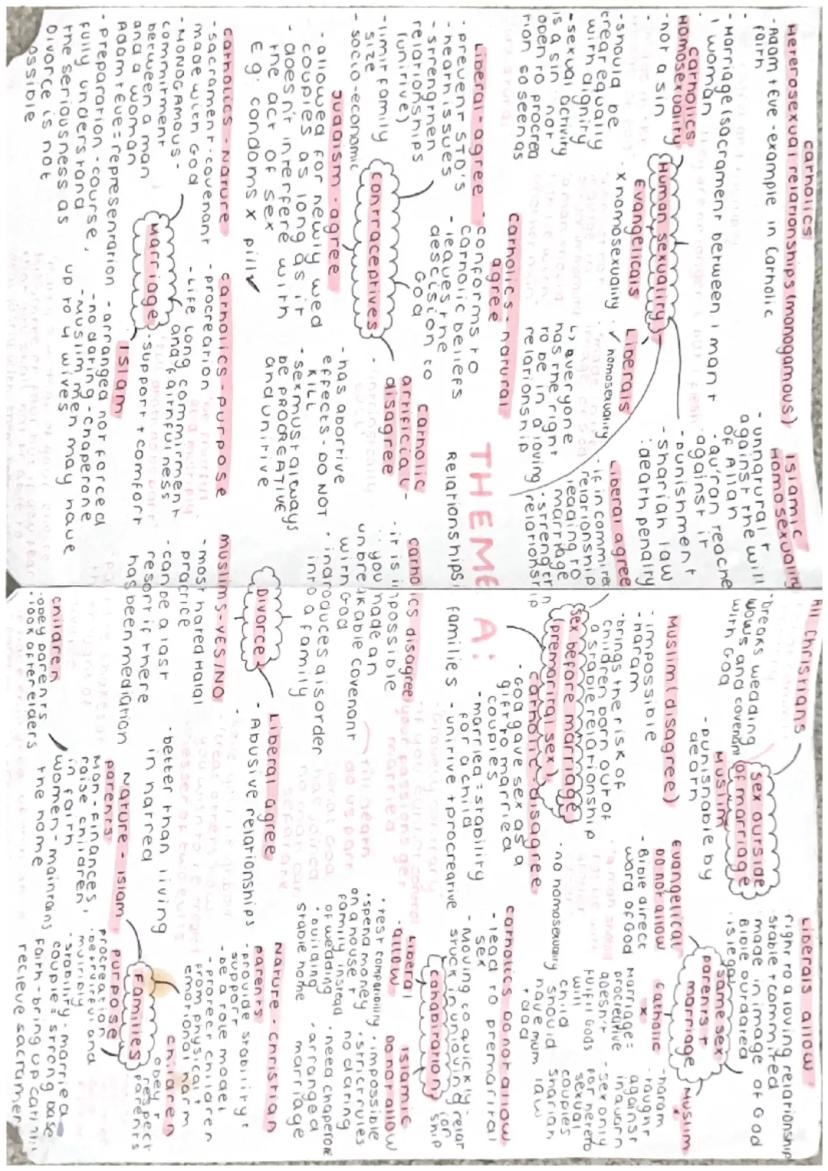 catholics
Heterosexual relationships (monogamous)
- Adam + Eve - example in Catholic
faith
- Marriage (sacrament between 1 man +
1 woman
catholics
Homosexuality
- not a sin
- should be
treat equally
with dignity
- sexual activity
is a sin - not
open to procrea
tion so seen as
Human sexuality
Evangelicals
x homosexuality
Liberals
✓ homosexuality
↳ everyone
has the right
to be in a loving
relationship
Islamic
Homosexuality
- unnatural +
against the will
of Allah
- Qu'ran teache
against it
- punishment
- sharian law
: death penalty
Liberal agree
- if in commited
relationship
leading to
marriage
- strengthen
relationship
THEME A:
Relationships
families
Liberal - agree
- prevent STD's
- health issues
- strengthen
relationships
(unitive)
- limit family
size
- socio-economic
Catholics - natural
agree
- conforms to
catholic beliefs
- leaves the
descision to
God
contraceptives
Judaism - agree
- allowed for newly wed
couples as long as it
doesn't interfere with
the act of sex
E.g: condoms x pill ✓
Catholic
artificial -
disagree
- has abortive
effects - DO NOT
KILL
- sex must always
be PROCREATIVE
and unitive
catholics - Nature
- sacrament - covenant
made with God
- MONOGAMOUS -
commitment
between a man
and a woman
Adam + Eve = representation
- preparation - course,
fully understand
the seriousness as
Divorce is not
possible
Marriage
catholics - Purpose
- procreation
- Life long commitment
and faithfulness
- support + comfort
Islam
- arranged not forced
- no dating - chaperone
- Muslim men may have
up to 4 wives
All Christians
- breaks wedding
vows and covenant
with God
sex outside
of marriage
MUSLIM
- punishable by
death
Muslim (disagree)
- impossible
- haram
- brings the risk of
children born out of
a stable relationship
sex before marriage
(premarital sex)
catholic disagree
- God gave sex as a
gift to married
couples
- married = stability
for a child
- unitive + procreative
Liberals allow
right to a loving relationship
stable + commited
made in image of God
Bible outdated
- is legal
same sex
parents +
marriage
Evangelical
Do not allow
- Bible direct
word of God
- no homosexuality
Catholic
x
Marriage =
procreative
doesn't
fulfil Gods
will
child
should
have mum
+ dad
Muslim
x
- haram
- taught
against
in Quran
- sex only
for hetero
sexual
couples
sharian
law
catholics disagree
- it is impossible
- you made an
unbreakable covenant
with God
- introduces disorder
into a family
Divorce
Muslims - YES/NO
- most hated Halal
practice
- can be a last
resort if there
has been mediation
Liberal agree
- Abusive relationships
- better than living
in hatred
catholics Do not allow
- lead to premarital
sex
- Moving to quickly -
stuck in unloving relation
ship
cohabitation
Liberal
- allow
- test compatability
- spend money
on a house
instead
of wedding
- building
stable home
Islamic
Do not allow
- impossible
- strict rules
no dating
- need chaperone
- arranged
marriage
Families
Nature - Christian
parents
- provide stability +
support
- be a role model
- protect children
from physical
emotional harm
children
- respect
obey +
parents
Nature - Islam
parents
Man - Finances,
raise children
in faith
Women - maintains
the home
children
- obey parents
- look after elders
Purpose
procreation
- be fruitful and
multiply
- stability - married
couple = strong base
Faith - bring up catholic
recieve sacramen